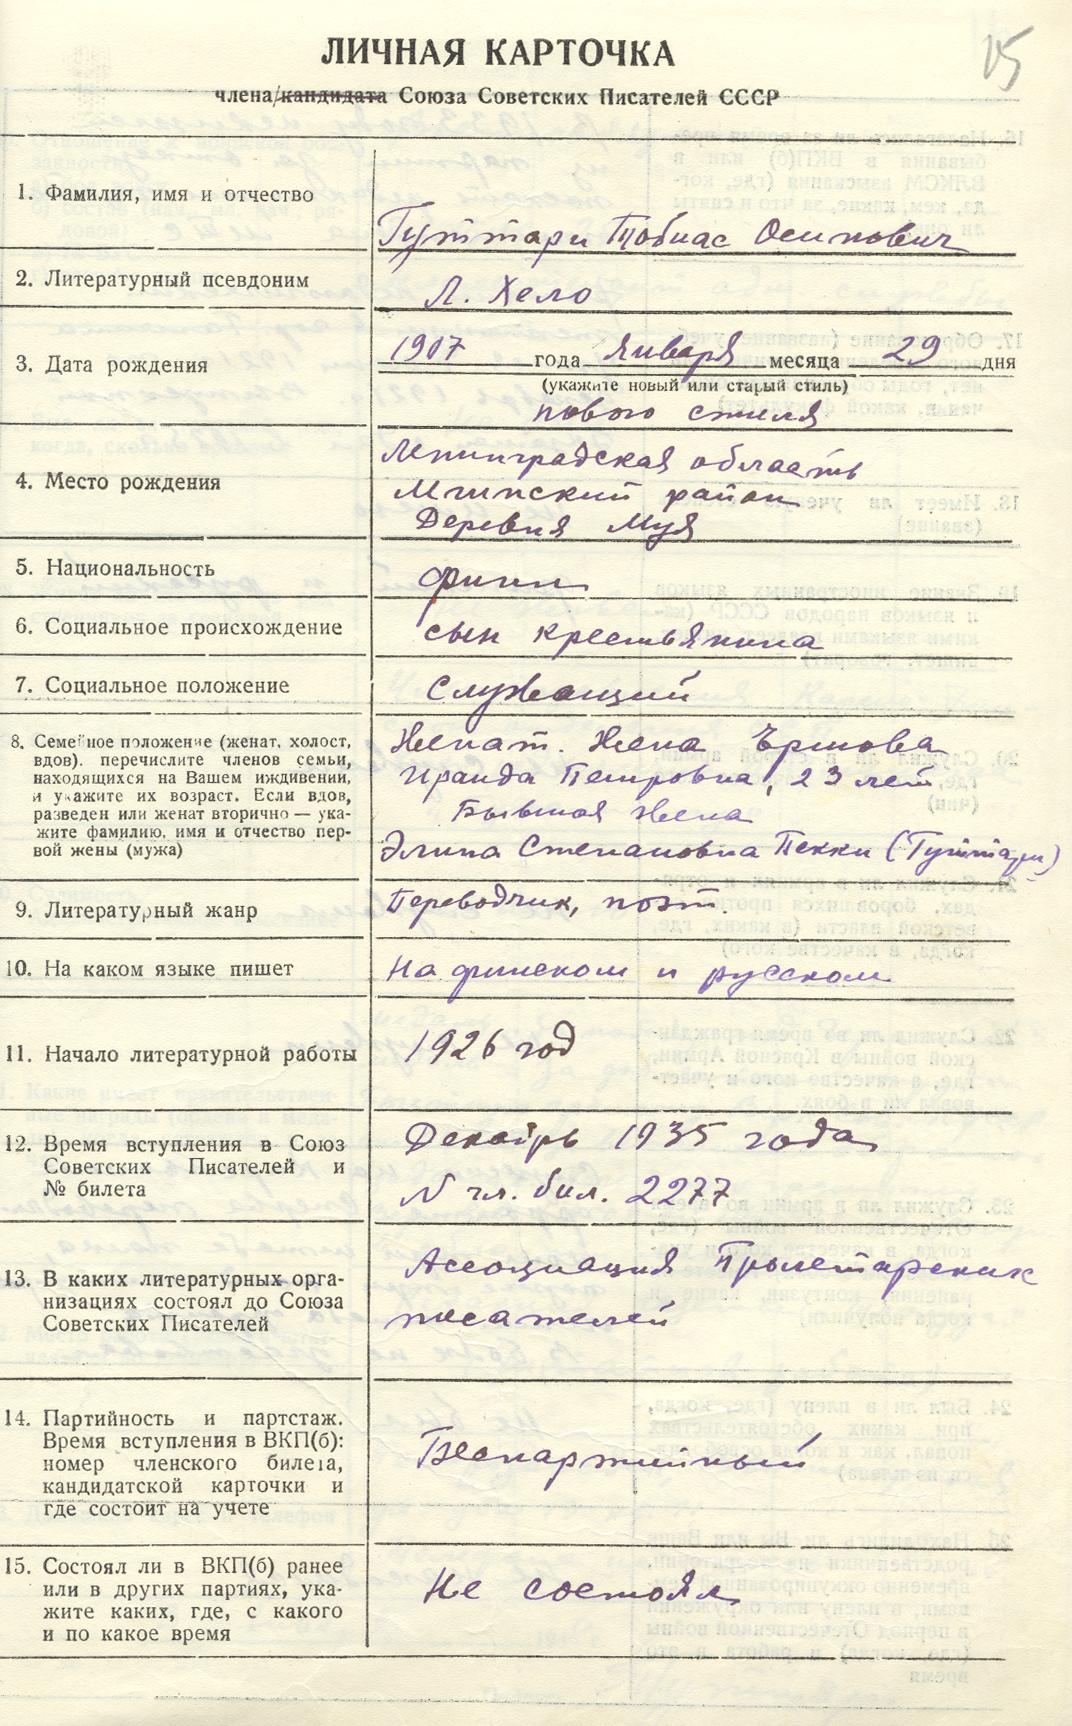 15
ЛИЧНАЯ КАРТОЧКА
члена/кандидата Союза Советских Писателей СССР
1. Фамилия, имя и отчество
Гуттари Тобиас Осипович
2. Литературный псевдоним
Л. Хело
3. Дата рождения
1907 года января месяца 29 дня
(укажите новый или старый стиль)
нового стиля
4. Место рождения
Ленинградская область
Мгинский район
Деревня Муя
5. Национальность
финн
6. Социальное происхождение
сын крестьянина
7. Социальное положение
Служащий
8. Семейное положение (женат, холост,
вдов). перечислите членов семьи,
находящихся на Вашем иждивении,
и укажите их возраст. Если вдов,
разведен или женат вторично — ука-
жите фамилию, имя и отчество пер-
вой жены (мужа)
Женат. Жена Ершова
Ираида Петровна, 23 лет
Бывшая жена
Элина Степановна Пекки (Гуттари)
9. Литературный жанр
Переводчик, поэт.
10. На каком языке пишет
На финском и русском
11. Начало литературной работы
1926 год
12. Время вступления в Союз
Советских Писателей и
№ билета
Декабрь 1935 года
N чл. бил. 2277
13. В каких литературных орга-
низациях состоял до Союза
Советских Писателей
Ассоциация Пролетарских
писателей
14. Партийность и партстаж.
Время вступления в ВКП(б):
номер членского билета,
кандидатской карточки и
где состоит на учете
Беспартийный
15. Состоял ли в ВКП(б) ранее
или в других партиях, ука-
жите каких, где, с какого
и по какое время
Не состоял